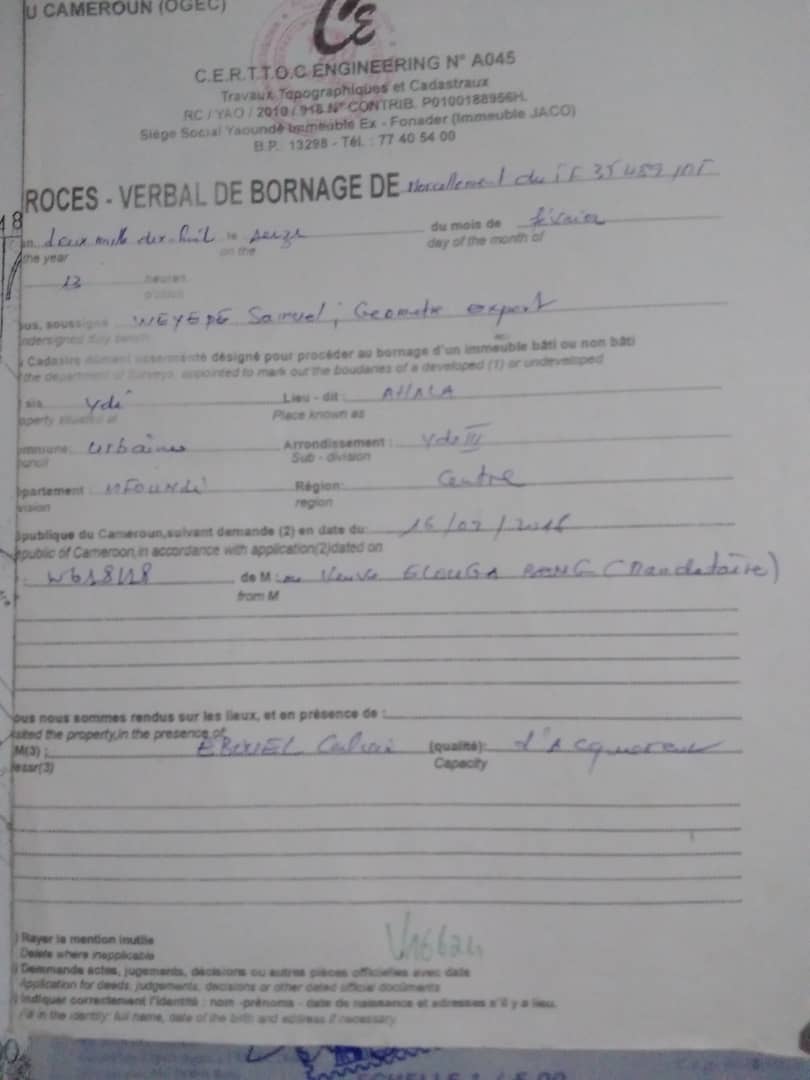 U CAMEROUN (OGEC)
CE
C.E.R.T.T.O.C ENGINEERING N° A045
Travaux Topographiques et Cadastraux
RC / YAO / 2010 / 918 N° CONTRIB. P0100188956H.
Siège Social Yaoundé Immeuble Ex - Fonader (Immeuble JACO)
B.P. 13298 - Tél. : 77 40 54 00
ROCES - VERBAL DE BORNAGE DE Morcellement du TF 35459
18
an deux mille dix-huit le seize du mois de février
the year on the day of the month of
13 heures
ous, soussigné WEYEPE Samuel, Geometre expert
ndersigned duly
Cadastre dûment assermenté désigné pour procéder au bornage d'un immeuble bâti ou non bâti
the department of surveys, appointed to mark out the boudaries of a developed (1) or undeveloped
sis Ydé Lieu - dit : AHALA
operty situated at Place known as
ommune: urbaine Arrondissement : Yde III
ouncil Sub - division
épartement : MFOUNDI Région: Centre
vision region
publique du Cameroun,suivant demande (2) en date du: 16/02/2018
epublic of Cameroon,in accordance with application(2)dated on
de M : me Veuve (Mandataire)
from M
ous nous sommes rendus sur les lieux, et en présence de :
isited the property,in the presence of
M(3) : Calvin (qualité): d'Acquereur
essr(3) Capacity
) Rayer la mention inutile
Delete where inapplicable
) Demmande actes, jugements, décisions ou autres pièces officielles avec date
Application for deeds, judgements, decisions or other dated official documents
) Indiquer correctement l'identité : nom -prénoms - date de naissance et adresses s'il y a lieu.
Fill in the identity: full name, date of the birth and address if necessary